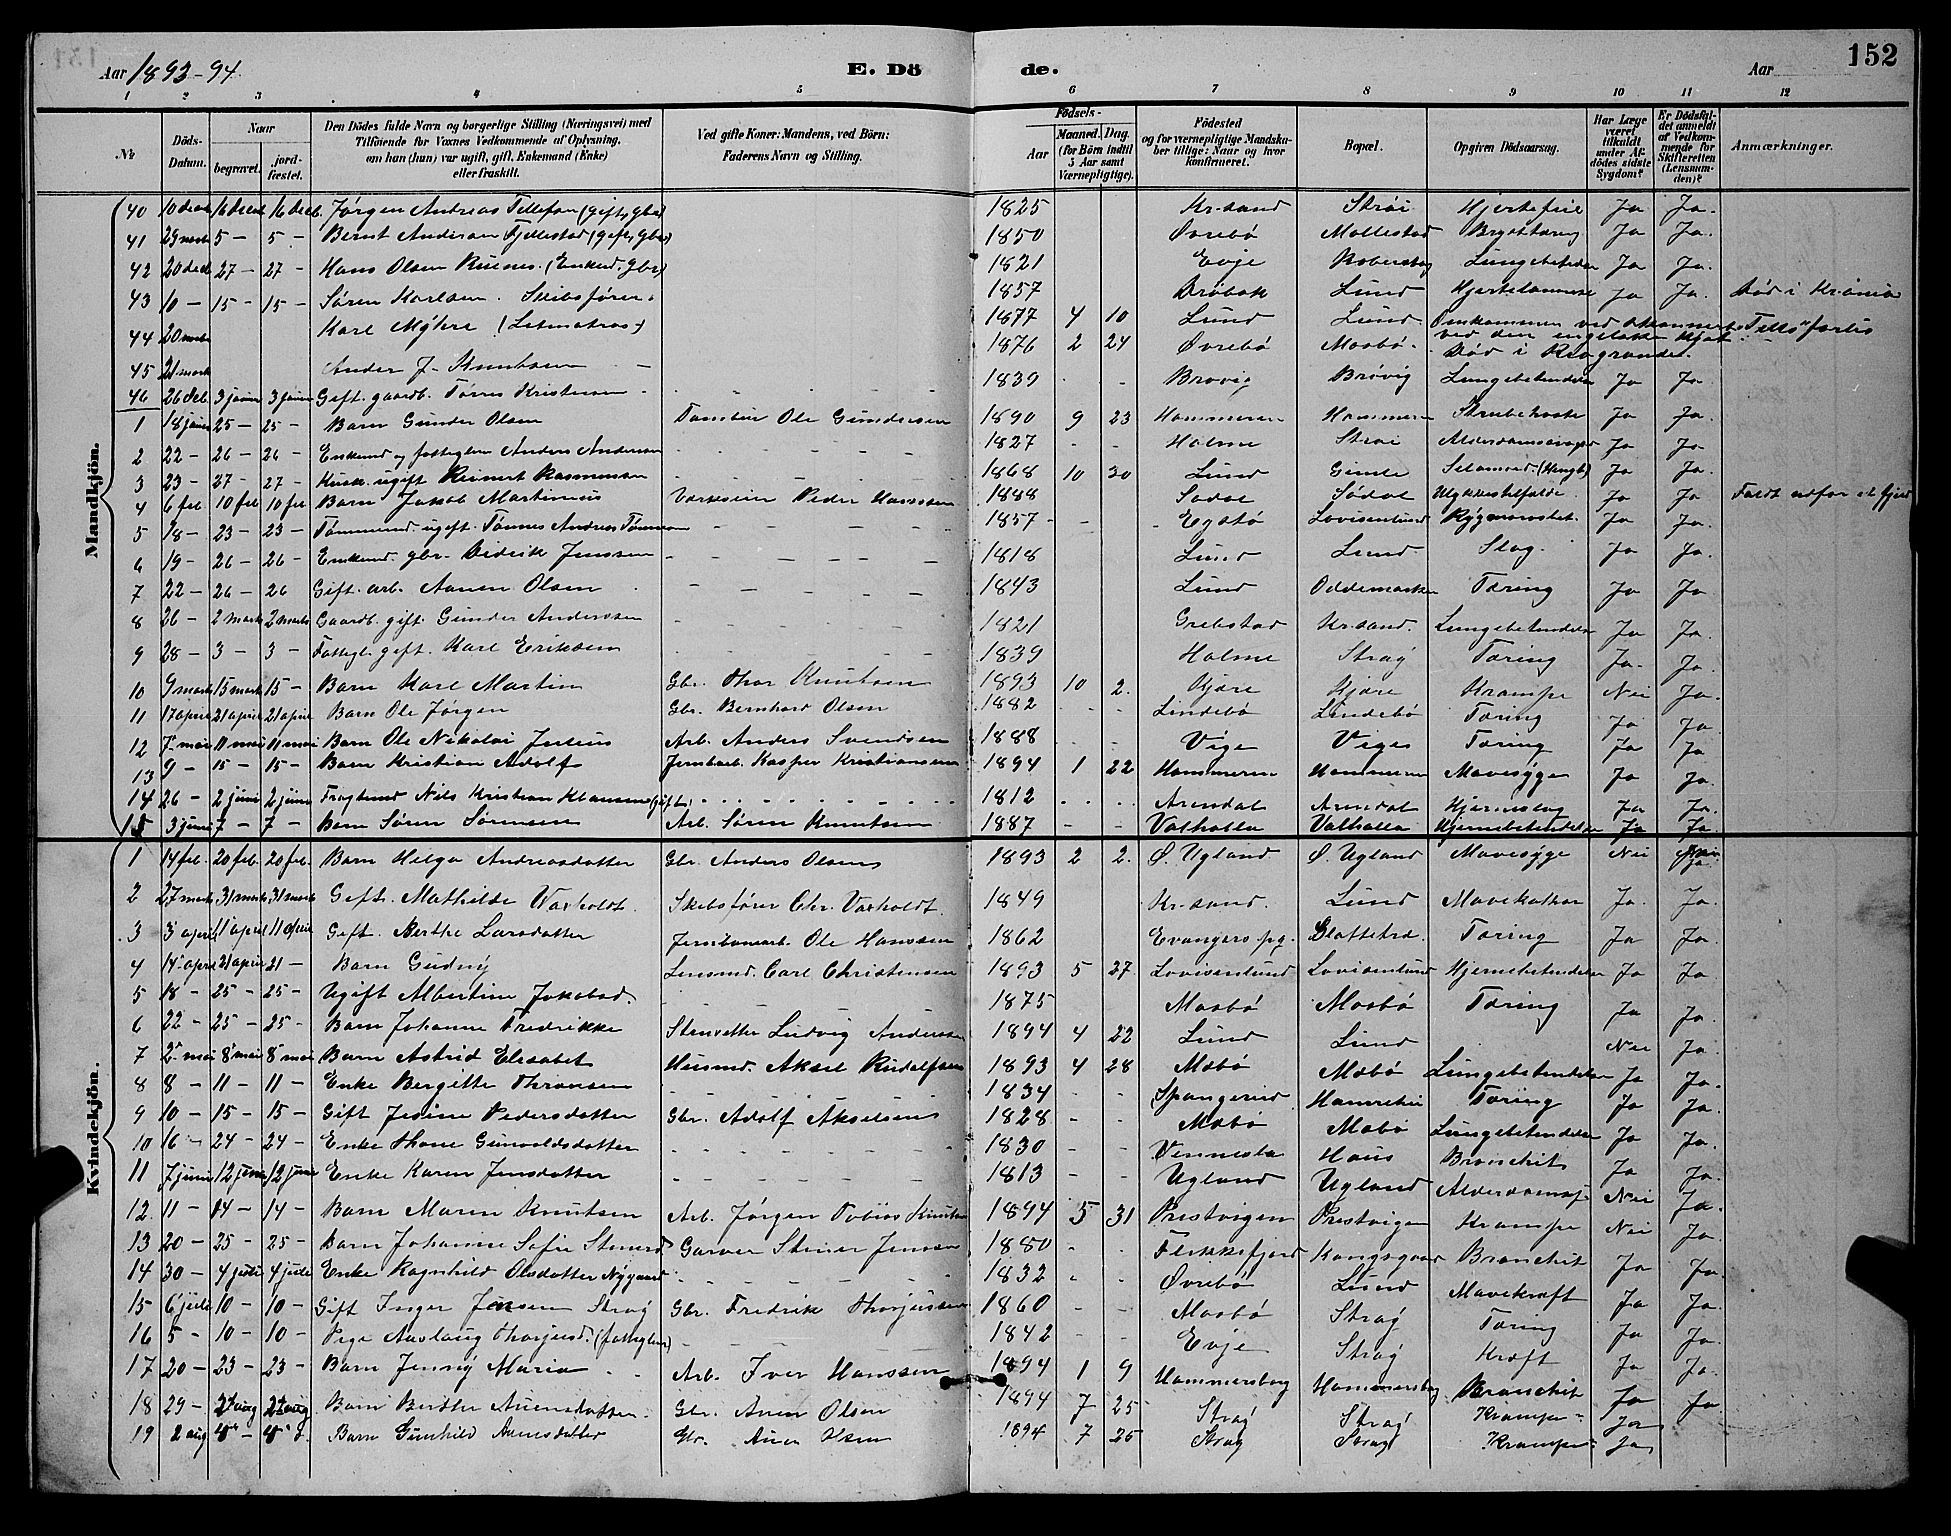 152
Aar 1893-94. E. Dö de. Aar
1 2 3 4 5 6 7 8 9 10 11 12
№ Döds-Datum. Naar begravet. jord-fæstet. Den Dödes fulde Navn og borgerlige Stilling (Næringsvei) med Tilföiende for Voxnes Vedkommende af Oplysning, om han (hun) var ugift, gift, Enkemand (Enke) eller fraskilt. Ved gifte Koner: Mandens, ved Börn: Faderens Navn og Stilling. Födsels- Aar Maaned. Dag. (for Börn indtil 5 Aar samt Værnepligtige). Födested og for værnepligtige Mandskaber tillige: Naar og hvor konfirmeret. Bopæl. Opgiven Dödsaarsag. Har Læge været tilkaldt under Afdödes sidste Sygdom? Er Dödsfaldet anmeldt af Vedkommende for Skifteretten (Lensmanden)? Anmærkninger.
Mandkjön.
40 10 decb 16 decb 16 decb. Jørgen Andreas Tellefsen (gift, gbr) 1825 Kr.sand Strøi Hjertefeil Ja Ja.
41 29 5 – 5 – Bernt Andersen Fjellestad (gift, gbr) 1850 Øvrebø Mollestad Brysttæring Ja Ja.
42 20 decb 27 – 27 – Hans Olsen (Enkemd, gbr) 1821 Evje Lungebetendelse Ja Ja.
43 10 – 15 – 15 – Søren Karlsen. Skibsfører. 1857 Drøbak Lund Hjertelammelse Ja Ja. Død i Kr.ania
44 20 Karl Myhre (Letmatros) 1877 4 10 Lund Lund. Omkommen ved
45 21 Anders J. Knutsen 1876 2 24 Øvrebø Mosbø. Død i Riogrande.
46 26 deb. 3 januar 3 januar Gift. gaardb. Tørres Kristensen 1839 Brøvig Brøvig Lungebetendelse Ja Ja
1 18 januar 25 – 25 – Barn Gunder Olsen Tambur Ole Gundersen 1890 9 23 Hammeren Hammeren Strubehoste Ja Ja.
2 22 – 26 – 26 – Enkemd og fattiglem Anders Andersen 1827 – – Holme Strai Ja Ja
3 23 – 27 – 27 – ugift Reinert Rasmussen 1868 10 30 Lund Gimle Ja Ja
4 6 feb 10 feb 10 feb Barn Jakob Martinius Peder Hanssen 1888 Sødal Sødal Ulykkestilfælde. Ja Ja Faldt udfor et fjeld
5 18 – 23 – 23 – Tømmermd. ugift. Tønnes Andreas 1857 – Lovisenlund Ja Ja.
6 19 – 26 – 26 – Enkemd. gbr. Didrik Jenssen 1818 Lund Lund Slag. Ja Ja.
7 22 – 26 – 26 Gift. arb. Aanen Olsen 1843 Lund Oddemarken Tæring Ja Ja
8 26 – 2 marts 2 marts Gaardb. gift. Gunder Anderssen 1821 Grebstad Kr.sand. Lungebetendelse Ja Ja.
9 28 – 3 – 3 – Fattigl. gift. Karl Eriksen 1839 Holme Strag Tæring Ja. Ja.
10 9 marts 15 marts 15 – Barn Karl Martin Gbr. Thor Knutsen 1893 10 2. Kjøre Kjøre Krampe Nei Ja.
11 17 april 21 april 21 april Barn Ole Jørgen Gbr. Bernhard Olsen 1882 Lindebø Lindebø Tæring Ja Ja.
12 7 mai 11 mai 11 mai Barn Ole Nikolai Julius Arb. Anders Svendsen 1888 Vige Viges Tæring Ja Ja
13 9 – 15 – 15 – Barn Kristian Adolf Jernbarb. Kasper Kristiansen 1894 1 22 Hammeren Hammeren Mavesyge Ja Ja.
14 26 – 2 juni 2 juni Nils Kristian Klausen (gift) 1812 Arendal Arendal Hjerneslag Ja Ja.
15 3 juni 7 – 7 – Barn Søren Sørensen Arb. Søren Knutsen 1887 – – Valhalla Valhalla Hjernebetendelse Ja Ja
Kvindekjön.
1 14 feb. 20 feb. 20 feb. Barn Helga Andreasdatter Gbr. Anders Olsen 1893 2 2. Ø. Ugland Ø. Ugland Mavesyge Nei Ja.
2 27 marts 31 marts 31 marts Gift. Mathilde Vaxholdt. Skibsfører Chr. Vaxholdt. 1849 Kr.sand. Lund Mavekatar Ja. Ja.
3 3 april 11 april 11 april Gift. Berthe Larsdatter Jernbanearb. Ole Hanssen 1862 Evangers pg. Tæring Ja Ja.
4 14 april 21 april 21 – Barn Gudny Lensmd. Carl Christensen 1893 5 27. Lovisenlund Lovisenlund Hjernebetendelse Ja Ja
5 18 – 25 – 25 – Ugift Albertine Jakobsd. 1875 Mosbø Mosbø Tæring Ja Ja.
6 22 – 25 – 25 – Barn Johanne Fredrikke Ludvig Andersen 1894 4 22 Lund Lund Nei Ja.
7 2 mai 8 mai 8 mai Barn Astrid Elisabet Husmd. Aksel Rudolfsen 1893 4 28 Mæbø Mæbø Lungebetendelse Ja Ja.
8 8 – 11 – 11 – Enke Bergitte Thronsen 1834 – – Spangereid Hamrehei Tæring Ja Ja.
9 10 – 15 – 15 – Gift Jesine Pedersdatter Gbr. Adolf Akselsens 1828 – – Mæbø Mæbø Lungebetendelse Ja Ja.
10 16 – 24 – 24 – Enke Thone Gunvoldsdatter 1830 – – Vennesla Haus Bronchit Ja Ja.
11 7 juni 12 juni 12 juni Enke Karen Jensdatter 1813 – – Ugland Ugland Nei Ja.
12. 11 – 14 – 14 – Barn Maren Knutsen Arb. Jørgen Tobias Knutsen 1894 5 31 Prestvigen Prestvigen Krampe Nei Ja.
13 20 – 25 – 25 – Barn Johanne Sofie Garver Jensen 1880 Flekkefjord Kongsgaard Bronchit Ja Ja.
14 30 – 4 juli 4 juli Enke Ragnhild Olsdatter Nygaard 1832 Øvrebø Lund Mavekræft Ja Ja.
15 6 juli 10 – 10 – Gift Inger Jensen Strag Gbr. Fredrik Thorjussen 1860 – – Mosbø Strag Tæring Ja Ja.
16 5 – 10 – 10 – Pige Aaslaug Thorjusd. (fattiglem) 1842 – – Evje Strag Kræft Ja Ja.
17 20 – 23 – 23 – Barn Jenny Marie Arb. Iver Hanssen 1894 1 9 Hammersborg Hammersborg Bronchit Ja Ja
18 29 – aug aug Barn Berthe Gbr. Aanen Olsen 1894 7 25 Strag Strag Krampe Ja
19 2 aug 4 – 4 – Barn Gunhild Aanensdatter Gbr. Aanen Olsen 1894 7 25 Strag Strag Krampe Ja